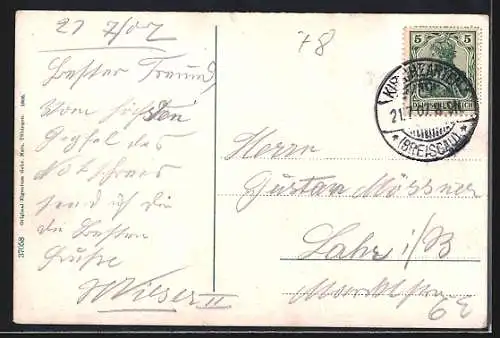 21 7/07
Bester Freund
Vom höchsten
Gipfel des
send ich dir
die besten
Grüße
Wieser II
78
5 5
DEUTSCHES REICH
KIRCHZARTEN
21.7.07.
*(BREISGAU)*
Herrn
Gustav Mössner
Lahr i/B
Marktstr
62
37058 Original-Eigentum Gebr. Metz, Tübingen. 1906.